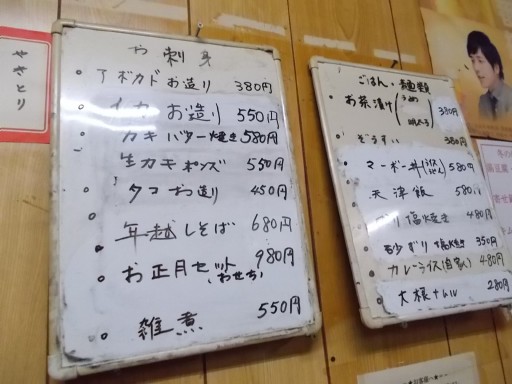 やきとり
お刺身
アボカドお造り 380円
イカ お造り 550円
カキ バター焼き 580円
生カキ ポンズ 550円
タコ お造り 450円
年越しそば 680円
お正月セット 980円
(おせち)
雑煮 550円
ごはん・麺類
お茶漬け 380円
ぞうすい 380円
マーボー丼 580円
天津飯 580円
塩焼き 480円
砂ずり塩焼き 350円
カレーライス(自家) 480円
大根ナムル 280円